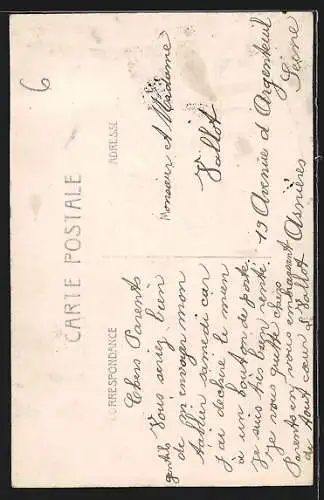 6
CARTE POSTALE
CORRESPONDANCE
ADRESSE
Chers Parents
Vous seriez bien
gentils de m'envoyer mon
tablier samedi car
j'ai déchiré le mien
à un bouton de porte
Je suis très bien rentré
Je vous quitte chers
Parents en vous embrassant
de tout cœur Vallot
Monsieur et Madame
Vallot
19 Avenue d'Argenteuil
Asnières
Seine